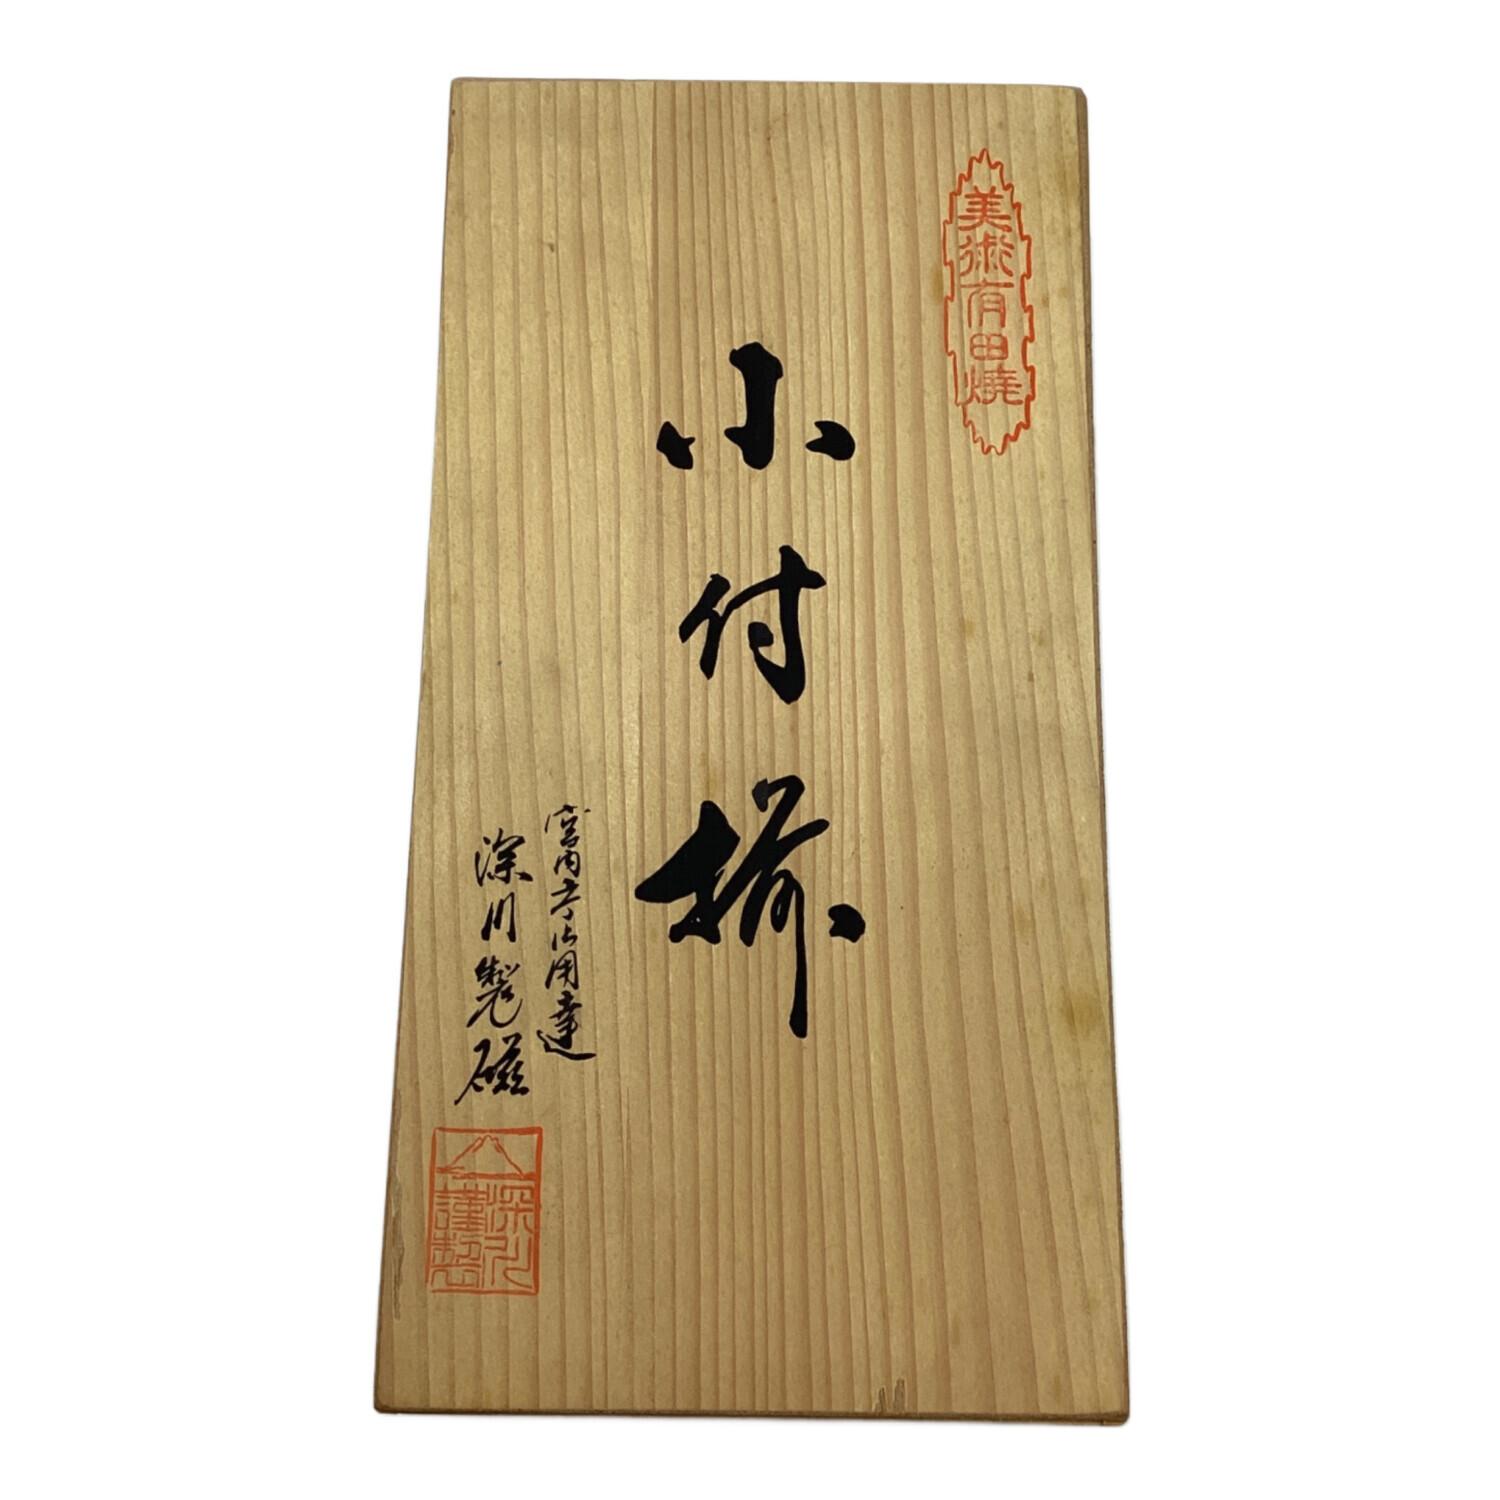 美術有田燒
小付揃
宮内庁御用達
深川製磁
深川
謹製